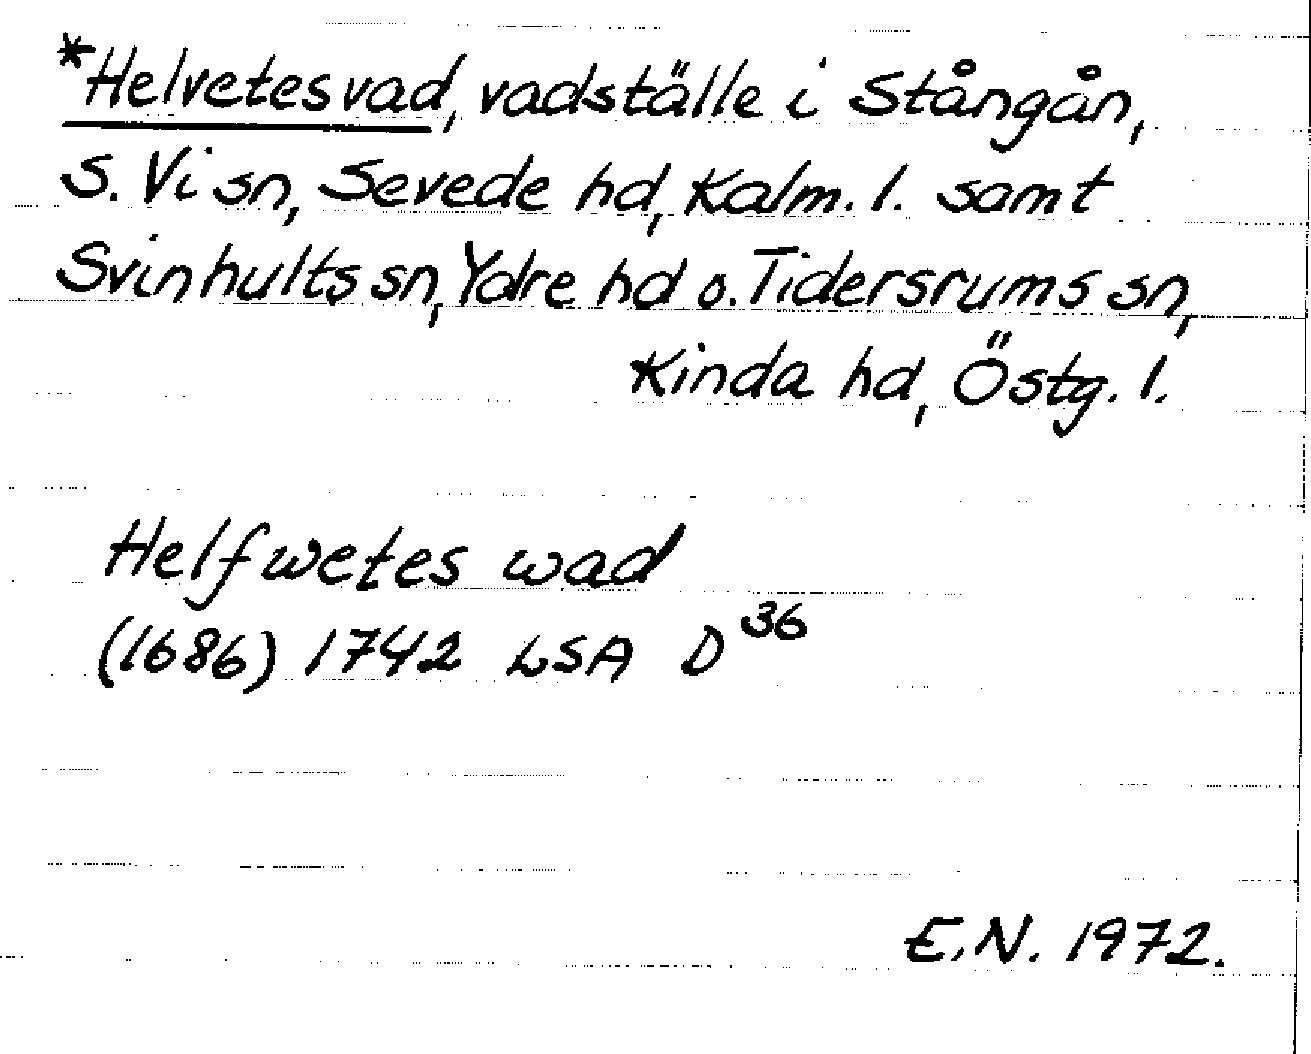 *Helvetesvad, vadställe i Stångån,
S. Vi sn, Sevede hd, Kalm. l. samt
Svinhults sn, Ydre hd o. Tidersrums sn,
Kinda hd, Östg. l.
Helfwetes wad
(1686) 1742 LSA D 36
E.N. 1972.